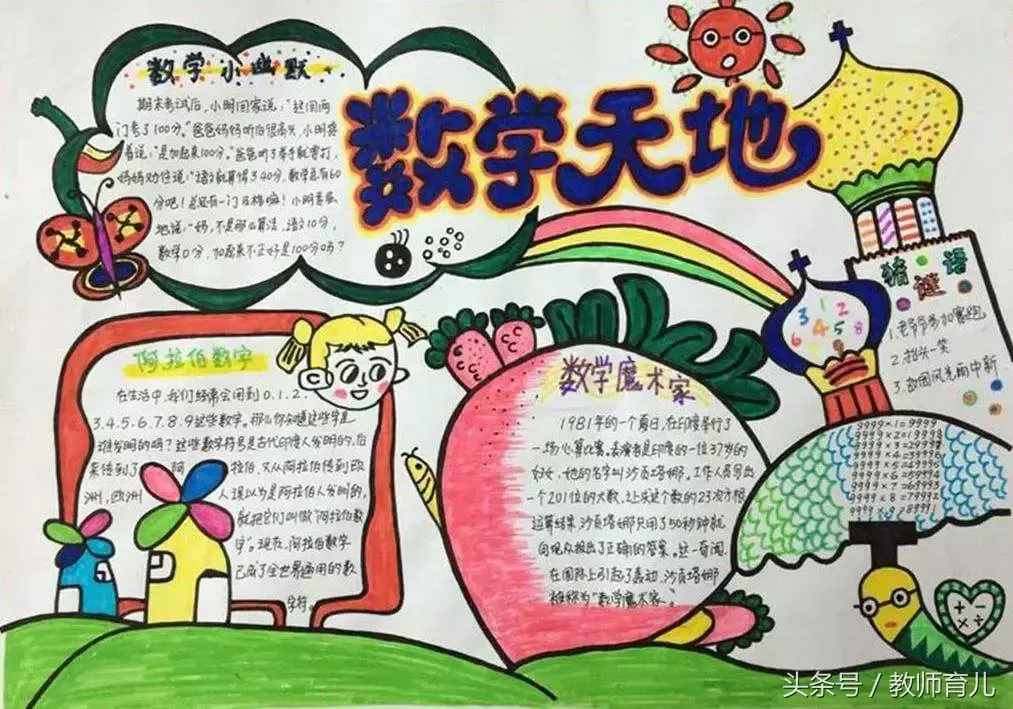 数学天地
数学小幽默
期末考试后,小明回家说:“这回两
门考了100分。”爸爸妈妈听后很高兴,小明接
着说:“是加起来100分。”爸爸听了举手就要打,
妈妈劝住说:“语文就算得了40分,数学总有60
分吧!总还有一门及格嘛!小明委屈
地说:“妈,不是那么算法,语文10分,
数学0分,加起来不正好是100分吗?
阿拉伯数字
在生活中,我们经常会用到0.1.2.
3.4.5.6.7.8.9这些数字。那么你知道这些字是
谁发明的吗?这些数字符号是古代印度人发明的,后
来传到了阿拉伯,又从阿拉伯传到欧
洲,欧洲人误以为是阿拉伯人发明的,
就把它们叫做“阿拉伯数
字”。现在,阿拉伯数字
已成了全世界通用的数
字符。
数学魔术家
1981年的一个夏日,在印度举行了
一场心算比赛,表演者是印度的一位37岁的
妇女,她的名字叫沙贡塔娜,工作人员写出
一个201位的大数,让求这个数的23次方根
运算结果沙贡塔娜只用了50秒钟就
向观众报出了正确的答案。这一奇闻
在国际上引起了轰动,沙贡塔娜
被称为“数学魔术家”。
3 1 2
6 4 5 8
猜谜语
1.老爷爷参加赛跑
2.抬头一笑
3.故国风光雨中新
9999×1=9999
9999×2=19998
9999×3=29997
9999×4=39996
9999×5=49995
9999×6=59994
9999×7=69993
9999×8=79992
9999×9=89991
+ -
× ÷
头条号 / 教师育儿